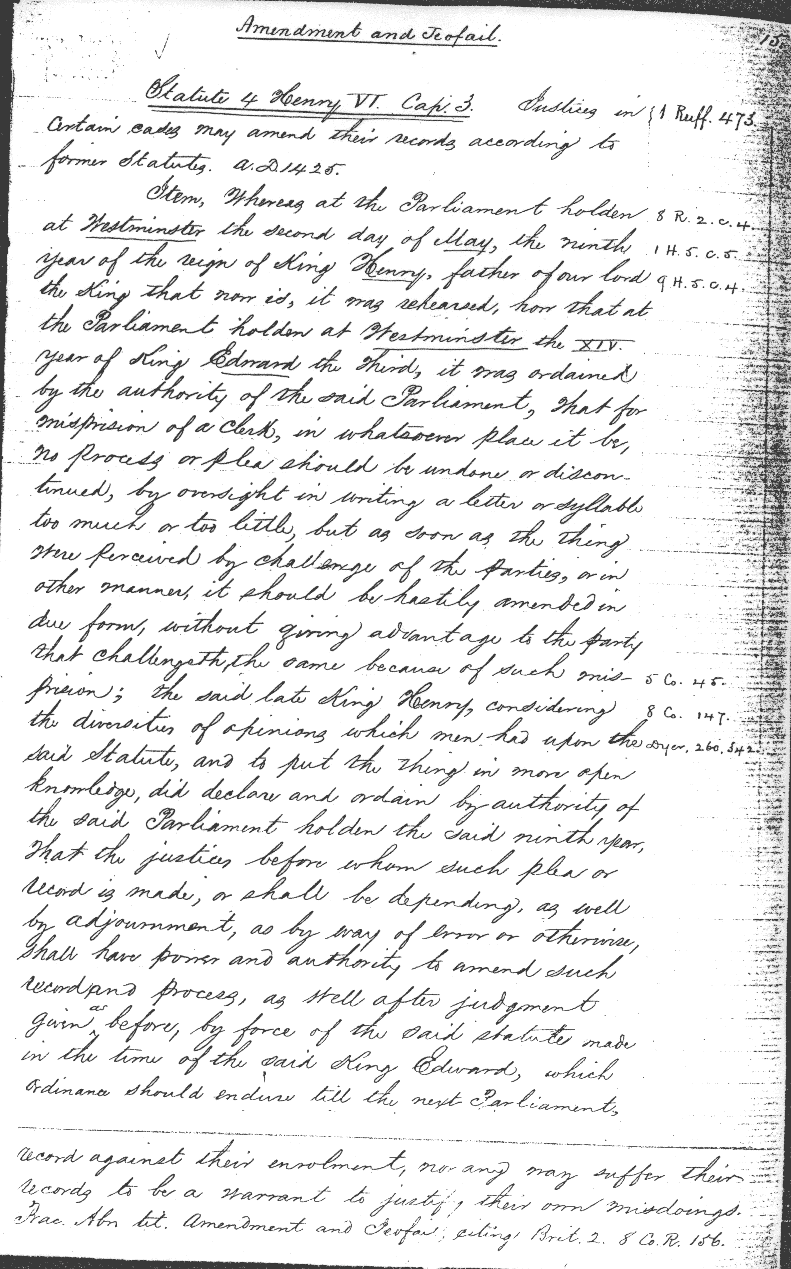 Amendment and Jeofail.
Statute 4 Henry VI. Cap. 3. Justices in { 1 Ruff. 473.
certain cases may amend their records according to
former Statutes. A.D. 1425.
Item, Whereas at the Parliament holden 8 R. 2. c. 4.
at Westminster the second day of May, the ninth 1 H. 5. c. 5.
year of the reign of King Henry, father of our lord 9 H. 5. c. 4.
the King that now is, it was rehearsed, how that at
the Parliament holden at Westminster the XIV.
year of King Edward the Third, it was ordained
by the authority of the said Parliament, That for
misprision of a Clerk, in whatsoever place it be,
no process or plea should be undone or discon-
tinued, by oversight in writing a letter or syllable
too much or too little, but as soon as the thing
were perceived by challenge of the parties, or in
other manner, it should be hastily amended in
due form, without giving advantage to the party
that challengeth the same because of such mis- 5 Co. 45.
prision; the said late King Henry, considering 8 Co. 147.
the diversities of opinions which men had upon the Dyer, 260. 342.
said Statute, and to put the thing in more open
knowledge, did declare and ordain by authority of
the said Parliament holden the said ninth year,
That the justices before whom such plea or
record is made, or shall be depending, as well
by adjournment, as by way of error or otherwise,
shall have power and authority to amend such
record and process, as well after judgment
given as before, by force of the said statute made
in the time of the said King Edward, which
ordinance should endure till the next Parliament,
record against their enrolment, nor any way suffer their
records to be a warrant to justify their own misdoings.
Abr. tit. Amendment and Jeofail, citing Brit. 2. 8 Co. R. 156.